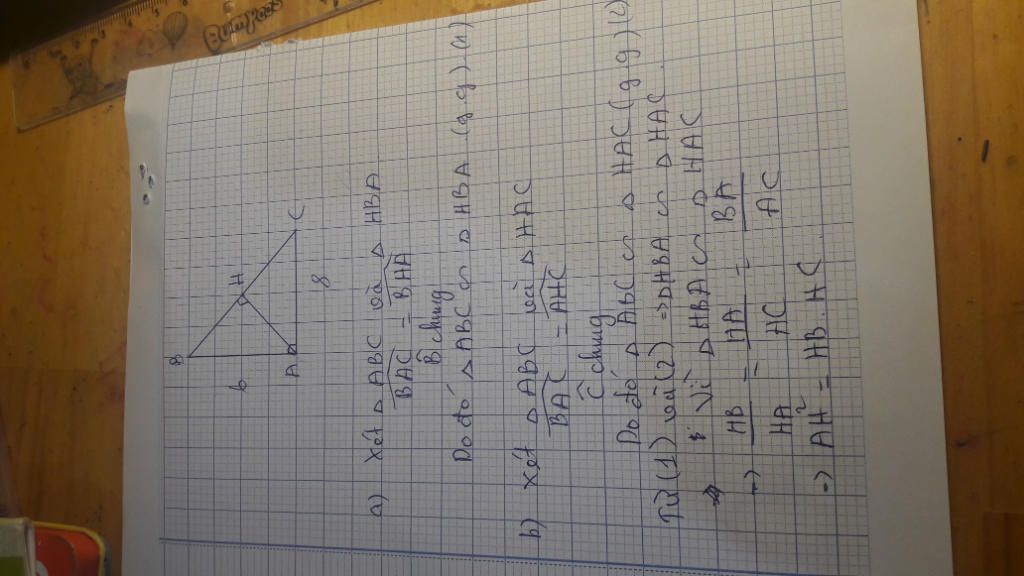 B
6
H
A
C
8
a) Xét △ABC và △HBA
BAC = BHA
B̂ chung
Do đó △ABC ∽ △HBA (g.g) (1)
b) Xét △ABC và △HAC
BAC = AHC
Ĉ chung
Do đó △ABC ∽ △HAC (g g) (2)
Từ (1) và (2) => △HBA ∽ △HAC.
Vì △HBA ∽ △HAC
=> HB/HA = HA/HC = BA/AC
=> AH² = HB.HC